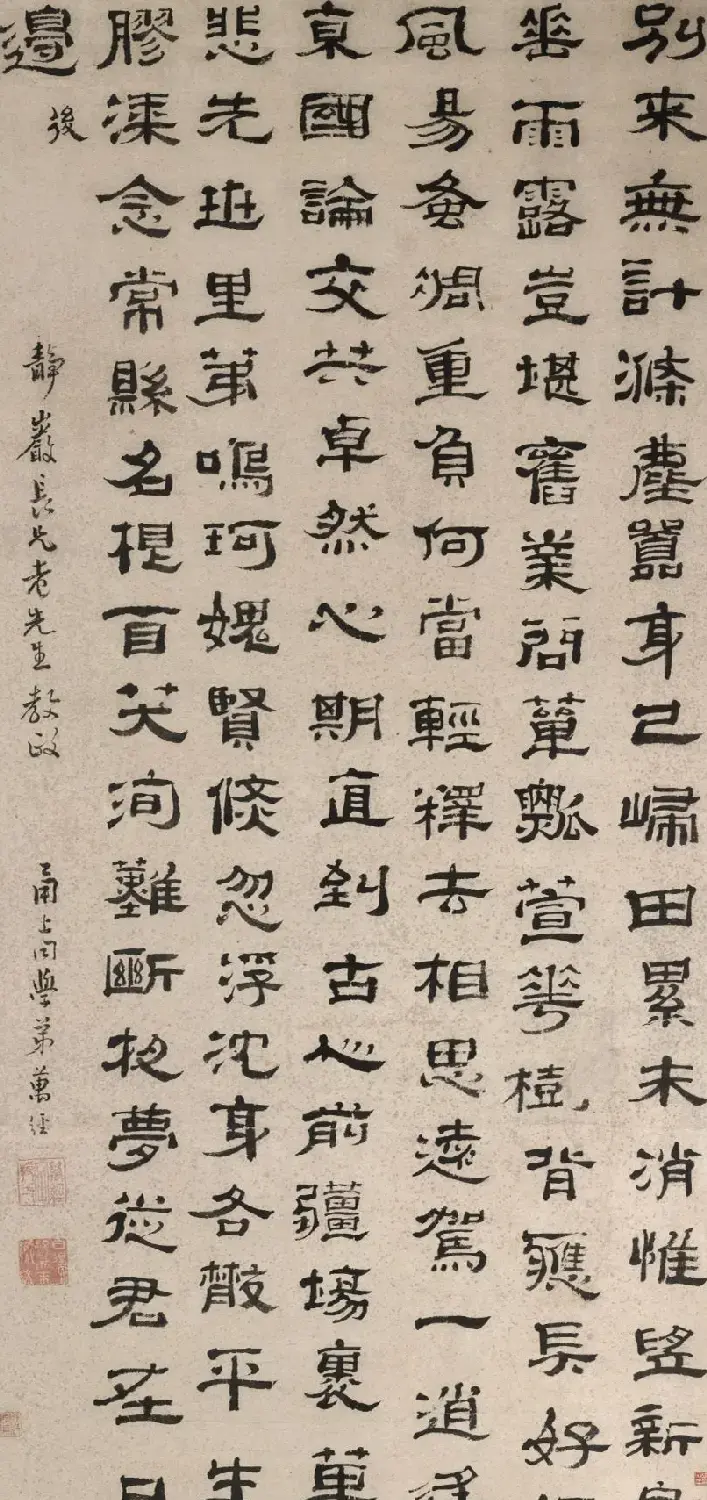 别來無計滌塵囂身已歸田累未消惟望新
垂雨露豈堪舊業簞瓢萱華樹背應長好
風易蚤凋重負何當輕釋去相思遠駕一逍
京國論交共卓然心期直到古前疆場裏萬
悲先班里第鳴珂媿賢倏忽浮沈身各散平生
膠漆念常縣名根自笑洵難斷夜夢從君在日
邊
後
靜巖長兄老先生教政
甬上同學弟萬經